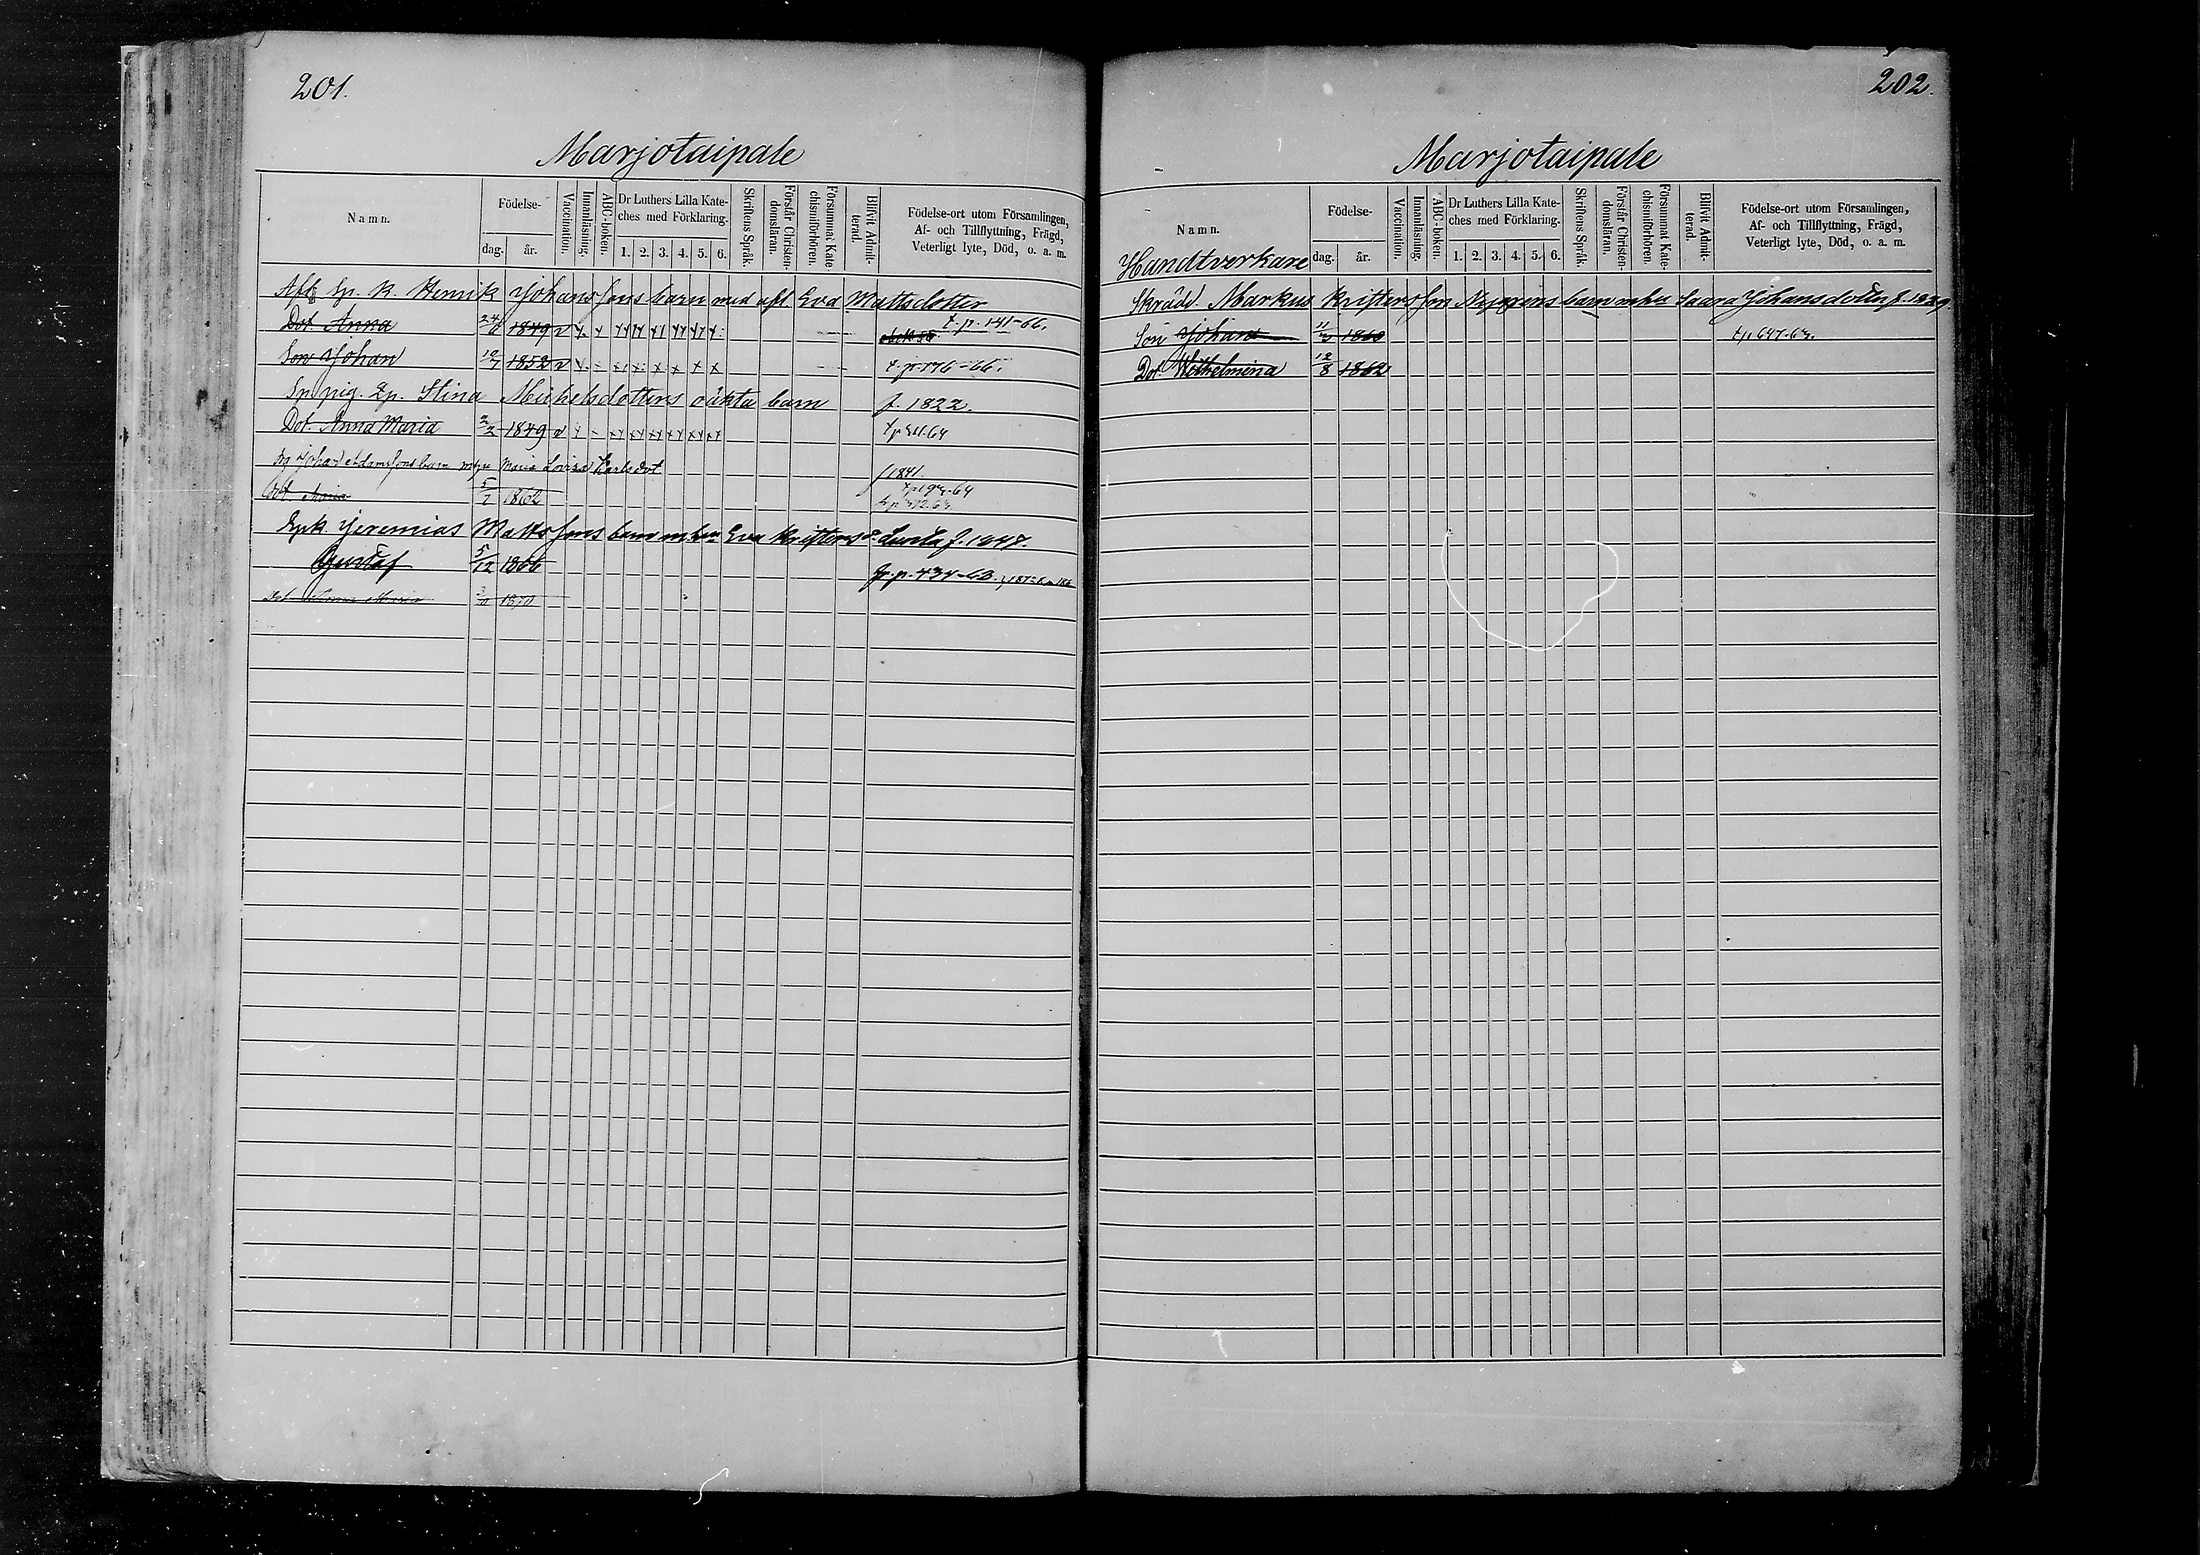 201.
Marjotaipale
Namn.
Födelse-
dag. år.
Vaccination.
Innanläsning.
ABC-boken.
Dr Luthers Lilla Kate-
ches med Förklaring.
1. 2. 3. 4. 5. 6.
Skriftens Språk.
Förstår Christen-
domsläran.
Försummat Kate
chismiförhören.
Blifvit Admit-
terad.
Födelse-ort utom Församlingen,
Af- och Tillflyttning, Frägd,
Veterligt lyte, Död, o. a. m.
Afl. Sp. k. Henrik Johansons barn med afl Eva Mattsdotter
Dot. Anna 1849 v t.p. 141-66.
Son Johan 10/7 1852 v t.p. 176-66.
Sp. pig. Stina Michelsdotters oäkta barn f. 1822.
Dot. Anna Maria 2/2 1849 v
Johan Adamsons barn Maria Lovisa Karlsdot f 1841
Dot. Maria 5/7 1862
Jeremias Mattssons barn Eva f. 1847.
Gustaf 5/12 1866 p. 434-68.
Dot. Maria 1870
202.
Marjotaipale
Namn.
Handtverkare
Födelse-
dag. år.
Vaccination.
Innanläsning.
ABC-boken.
Dr Luthers Lilla Kate-
ches med Förklaring.
1. 2. 3. 4. 5. 6.
Skriftens Språk.
Förstår Christen-
domsläran.
Försummat Kate-
chismiförhören.
Blifvit Admit-
terad.
Födelse-ort utom Församlingen,
Af- och Tillflyttning, Frägd,
Veterligt lyte, Död, o. a. m.
Skrädd. Markus Kristersson barn Saara Johansdotter f. 1829.
Son Johan 1860 t.p 647.63.
Dot Wilhelmina 12/8 1862